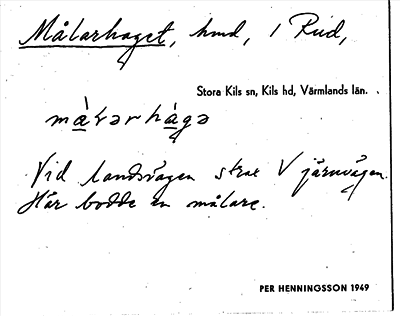 Målarhaget, hmd, 1 Rud,
Stora Kils sn, Kils hd, Värmlands län.
Vid landsvägen strax V järnvägen.
Här bodde en målare.
PER HENNINGSSON 1949